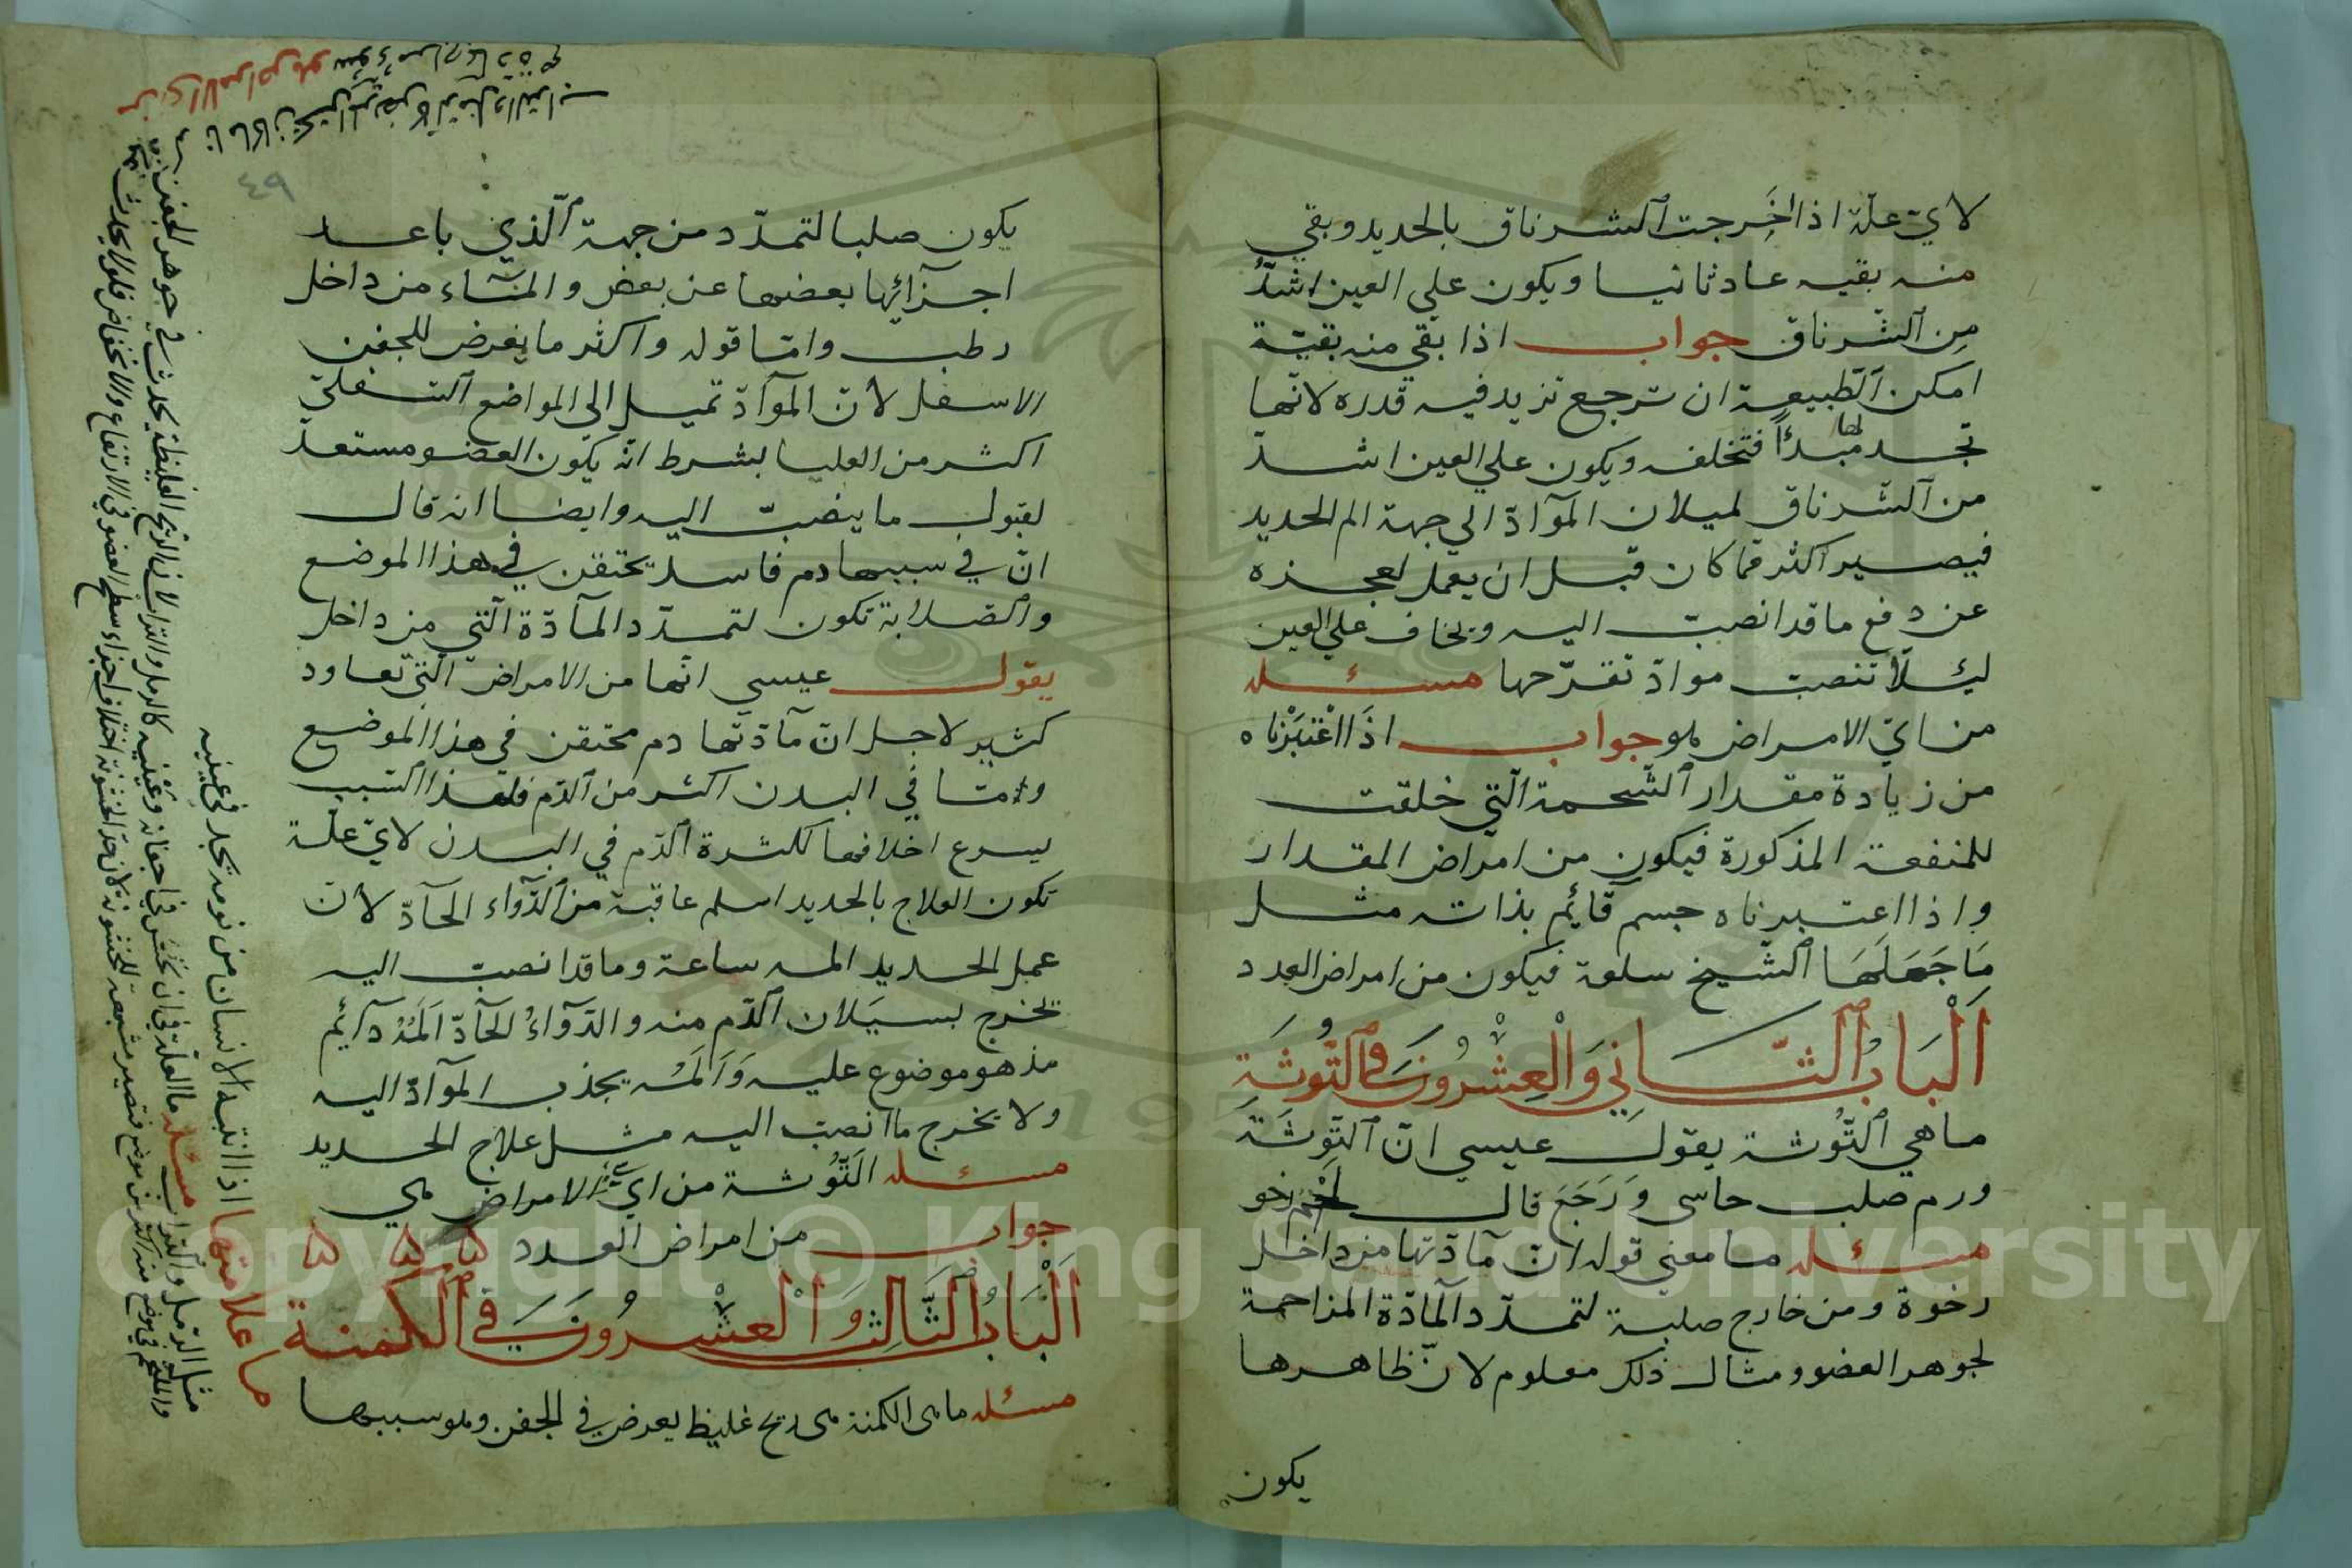 لاي علة اذا اخرجت الشرناق بالحديد وبقي
منه بقيه عاد ثانيا ويكون علي العين اشد
من الشرناق جواب اذا بقي منه بقية
امكن الطبيعة ان ترجع تزيد فيه قدره لانها
تجد لها مبدأ فتخلفه ويكون علي العين اشد
من الشرناق لميلان المواد الي جهة الم الحديد
فيصير اكثر مما كان قبل ان يعمل لعجزه
عن دفع ما قد انصب اليه ويخاف علي العين
ليئلا تنصب مواد تقرحها مسئله
من اي الامراض هو جواب اذا اعتبرناه
من زيادة مقدار الشحمة التي خلقت
للمنفعة المذكورة فيكون من امراض المقدار
واذا اعتبرناه جسم قائم بذاته مثل
ما جعلها الشيخ سلعة فيكون من امراض العدد
الباب الثاني والعشرون في التوثة
ما هي التوثة يقول عيسي ان التوثة
ورم صلب جاسي ورجع قال لحم رخو
مسئله ما معني قوله ان مادتها من داخل
رخوة ومن خارج صلبة لتمدد المادة المزاحمة
لجوهر العضو ومثال ذلك معلوم لان ظاهرها
يكون
٤٩
يكون صلبا لتمدد من جهة الذي باعد
اجزائها بعضها عن بعض والماء من داخل
رطب واما قوله واكثر ما يعرض للجفن
الاسفل لأن المواد تميل الي المواضع السفلي
اكثر من العليا بشرط انه يكون العضو مستعد
لقبول ما ينصب اليه وايضا انه قال
ان في سببها دم فاسد يحتقن في هذا الموضع
والصلابة تكون لتمدد المادة التي من داخل
يقول عيسي انها من الامراض التي تعاود
كثير لاجل ان مادتها دم محتقن في هذا الموضع
وما في البدن اكثر من الدم فلهذا السبب
يسرع اخلافها لكثرة الدم في البدن لاي علة
تكون العلاج بالحديد اسلم عاقبة من الدواء الحاد لأن
عمل الحديد المه ساعة وما قد انصب اليه
تخرج بسيلان الدم منه والدواء الحاد المه دائم
مذ هو موضوع عليه والمه يجذب المواد اليه
ولا يخرج ما انصب اليه مثل علاج الحديد
مسئله التوثة من اي الامراض هي
جواب من امراض العدد
الباب الثالث والعشرون في الكمنة
مسئله ما هي الكمنة هي ريح غليظ يعرض في الجفن وهو سببها
ما علامتها اذا انتبه الانسان من نومه تجد في عينيه
مثل الرمل والتراب مسئله ما العلة في ان تحس في اجفانه وعينيه كالرمل والتراب لان الريح الغليظة يحدث في جوهر الجفن